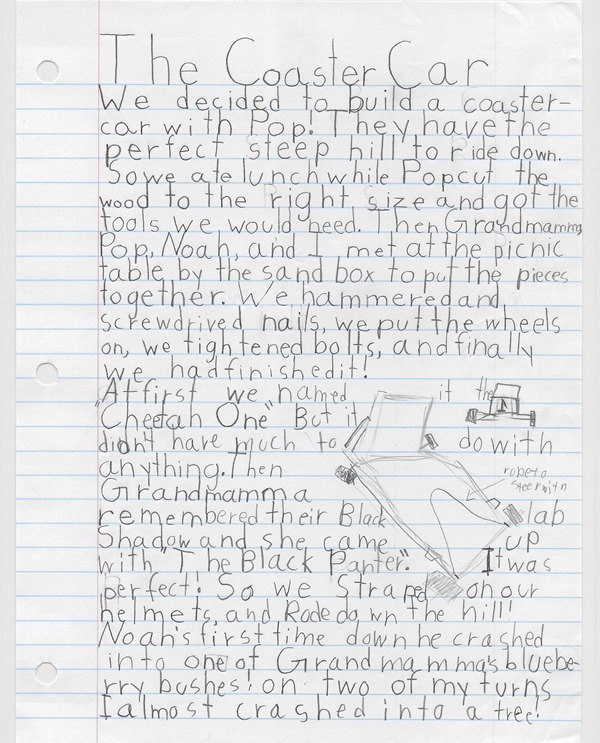 The Coaster Car
We decided to build a coaster-
car with Pop! They have the
perfect steep hill to ride down.
So we ate lunch while Pop cut the
wood to the right size and got the
tools we would need. Then Grandmamma
Pop, Noah, and I met at the picnic
table by the sand box to put the pieces
together. We hammered and
screwdrived nails, we put the wheels
on, we tightened bolts, and finally
we had finished it!
At first we named it the
"Cheetah One" But it
didn't have much to do with
anything. Then
rope to
steer with
Grandmamma
remembered their Black lab
Shadow and she came up
with "The Black Panter". It was
perfect! So we Straped on our
helmets, and Rode down the hill!
Noah's first time down he crashed
into one of Grandmamma's bluebe-
rry bushes! on two of my turns
I almost crashed into a tree!